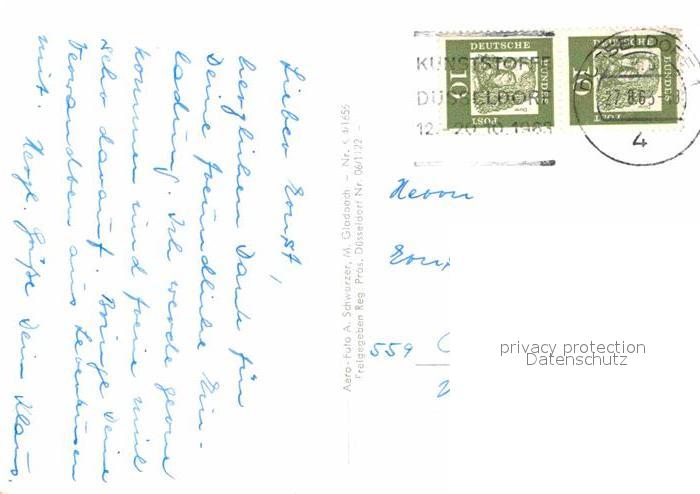 Lieber Ernst,
herzlichen Dank für
Deine freundliche Ein-
ladung. Ich werde gerne
kommen und freue mich
sehr darauf. Bringe Deine
Verwandten aus Leverkusen
mit. Herzl. Grüße Dein Klaus.
Aero-Foto A. Schwarzer, M. Gladbach - Nr. s 4/1656
Freigegeben Reg. Präs. Düsseldorf Nr. 06/1122 -
DEUTSCHE
BUNDES
POST
10
DEUTSCHE
BUNDES
POST
10
KUNSTSTOFFE
DÜSSELDORF
12.-20.10.1963
DÜSSELDORF
4
Herrn
559
privacy protection
Datenschutz